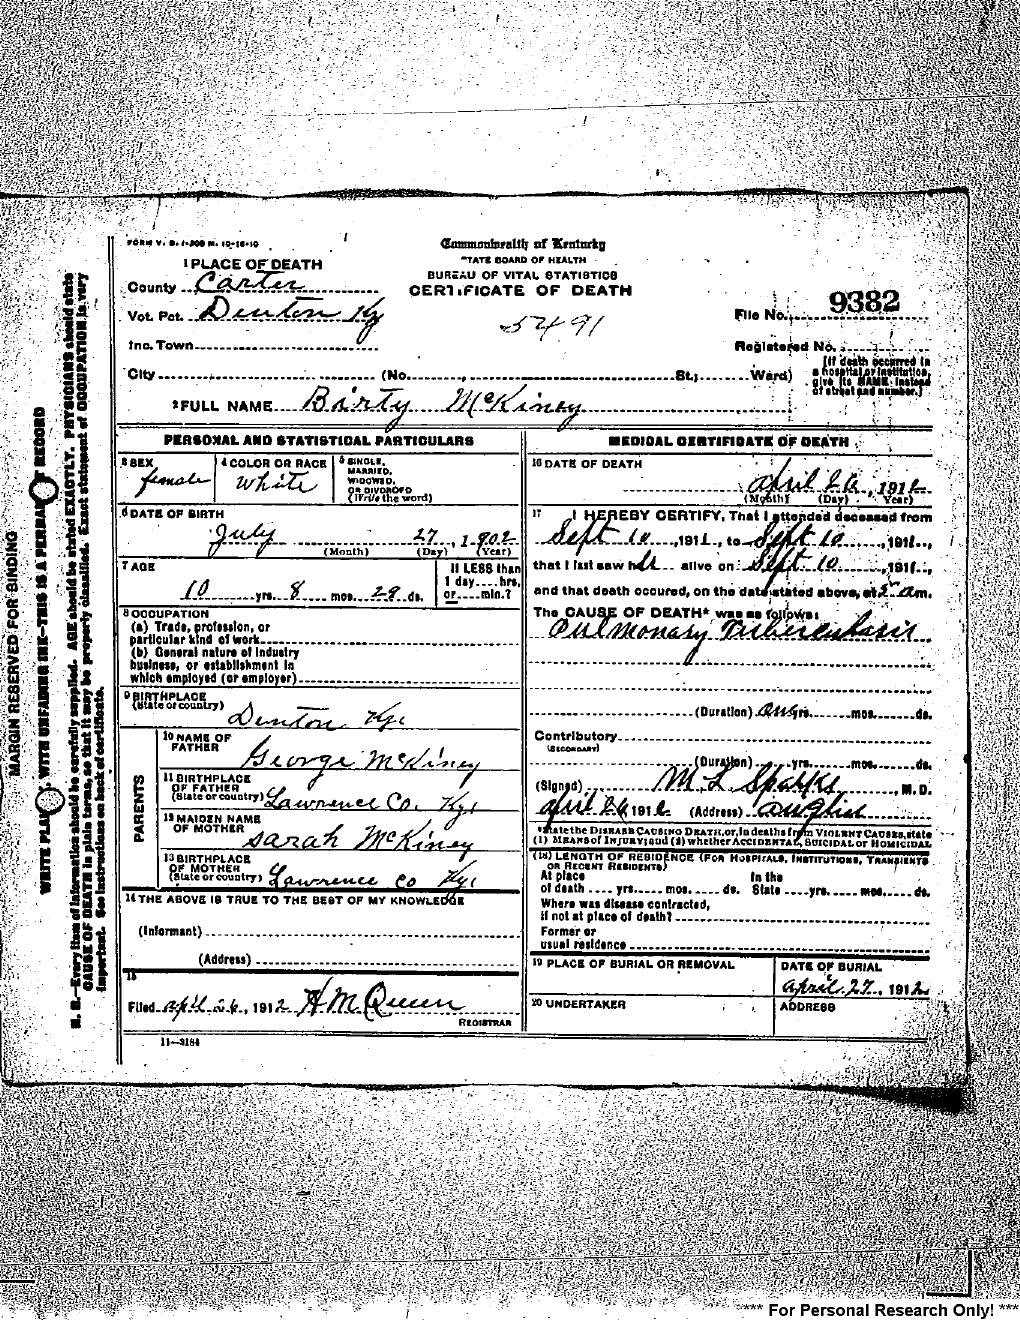 FORM V. S. 1-300 M. 10-16-10
Commonwealth of Kentucky
STATE BOARD OF HEALTH
BUREAU OF VITAL STATISTICS
CERTIFICATE OF DEATH
1 PLACE OF DEATH
County Carter
Vot. Pct. Denton Ky
5491
File No. 9382
Inc. Town
Registered No.
City (No. , St.; Ward)
[If death occurred in a hospital or institution, give its NAME instead of street and number.]
2 FULL NAME Birty McKiney
PERSONAL AND STATISTICAL PARTICULARS
3 SEX female
4 COLOR OR RACE white
5 SINGLE, MARRIED, WIDOWED, OR DIVORCED (Write the word)
6 DATE OF BIRTH
July 27, 1902
(Month) (Day) (Year)
7 AGE
10 yrs. 8 mos. 29 ds.
If LESS than 1 day hrs. or min.?
8 OCCUPATION
(a) Trade, profession, or
particular kind of work
(b) General nature of industry
business, or establishment in
which employed (or employer)
9 BIRTHPLACE
(State or country) Denton Ky.
PARENTS
10 NAME OF FATHER George McKiney
11 BIRTHPLACE OF FATHER (State or country) Lawrence Co. Ky.
12 MAIDEN NAME OF MOTHER Sarah McKiney
13 BIRTHPLACE OF MOTHER (State or country) Lawrence Co Ky.
14 THE ABOVE IS TRUE TO THE BEST OF MY KNOWLEDGE
(Informant)
(Address)
15
Filed april 26, 1912 H M Queen
REGISTRAR
11—3184
MEDICAL CERTIFICATE OF DEATH
16 DATE OF DEATH
april 26, 1912
(Month) (Day) (Year)
17 I HEREBY CERTIFY, That I attended deceased from
Sept 10, 1911, to Sept 10, 1911,
that I last saw her alive on Sept 10, 1911,
and that death occured, on the date stated above, at 2 am.
The CAUSE OF DEATH* was as follows:
Pulmonary Tuberculosis
(Duration) one yrs. mos. ds.
Contributory
(SECONDARY)
(Duration) yrs. mos. ds.
(Signed) M L Sparks, M. D.
april 26 1912 (Address)
*State the DISEASE CAUSING DEATH, or, in deaths from VIOLENT CAUSES, state
(1) MEANS OF INJURY; and (2) whether ACCIDENTAL, SUICIDAL or HOMICIDAL
(18) LENGTH OF RESIDENCE (FOR HOSPITALS, INSTITUTIONS, TRANSIENTS
OR RECENT RESIDENTS)
At place In the
of death yrs. mos. ds. State yrs. mos. ds.
Where was disease contracted,
if not at place of death?
Former or
usual residence
19 PLACE OF BURIAL OR REMOVAL
DATE OF BURIAL
april 27, 1912
20 UNDERTAKER
ADDRESS
MARGIN RESERVED FOR BINDING
WRITE PLAINLY, WITH UNFADING INK—THIS IS A PERMANENT RECORD
N. B.—Every item of information should be carefully supplied. AGE should be stated EXACTLY. PHYSICIANS should state
CAUSE OF DEATH in plain terms, so that it may be properly classified. Exact statement of OCCUPATION is very
important. See instructions on back of certificate.
*** For Personal Research Only! ***